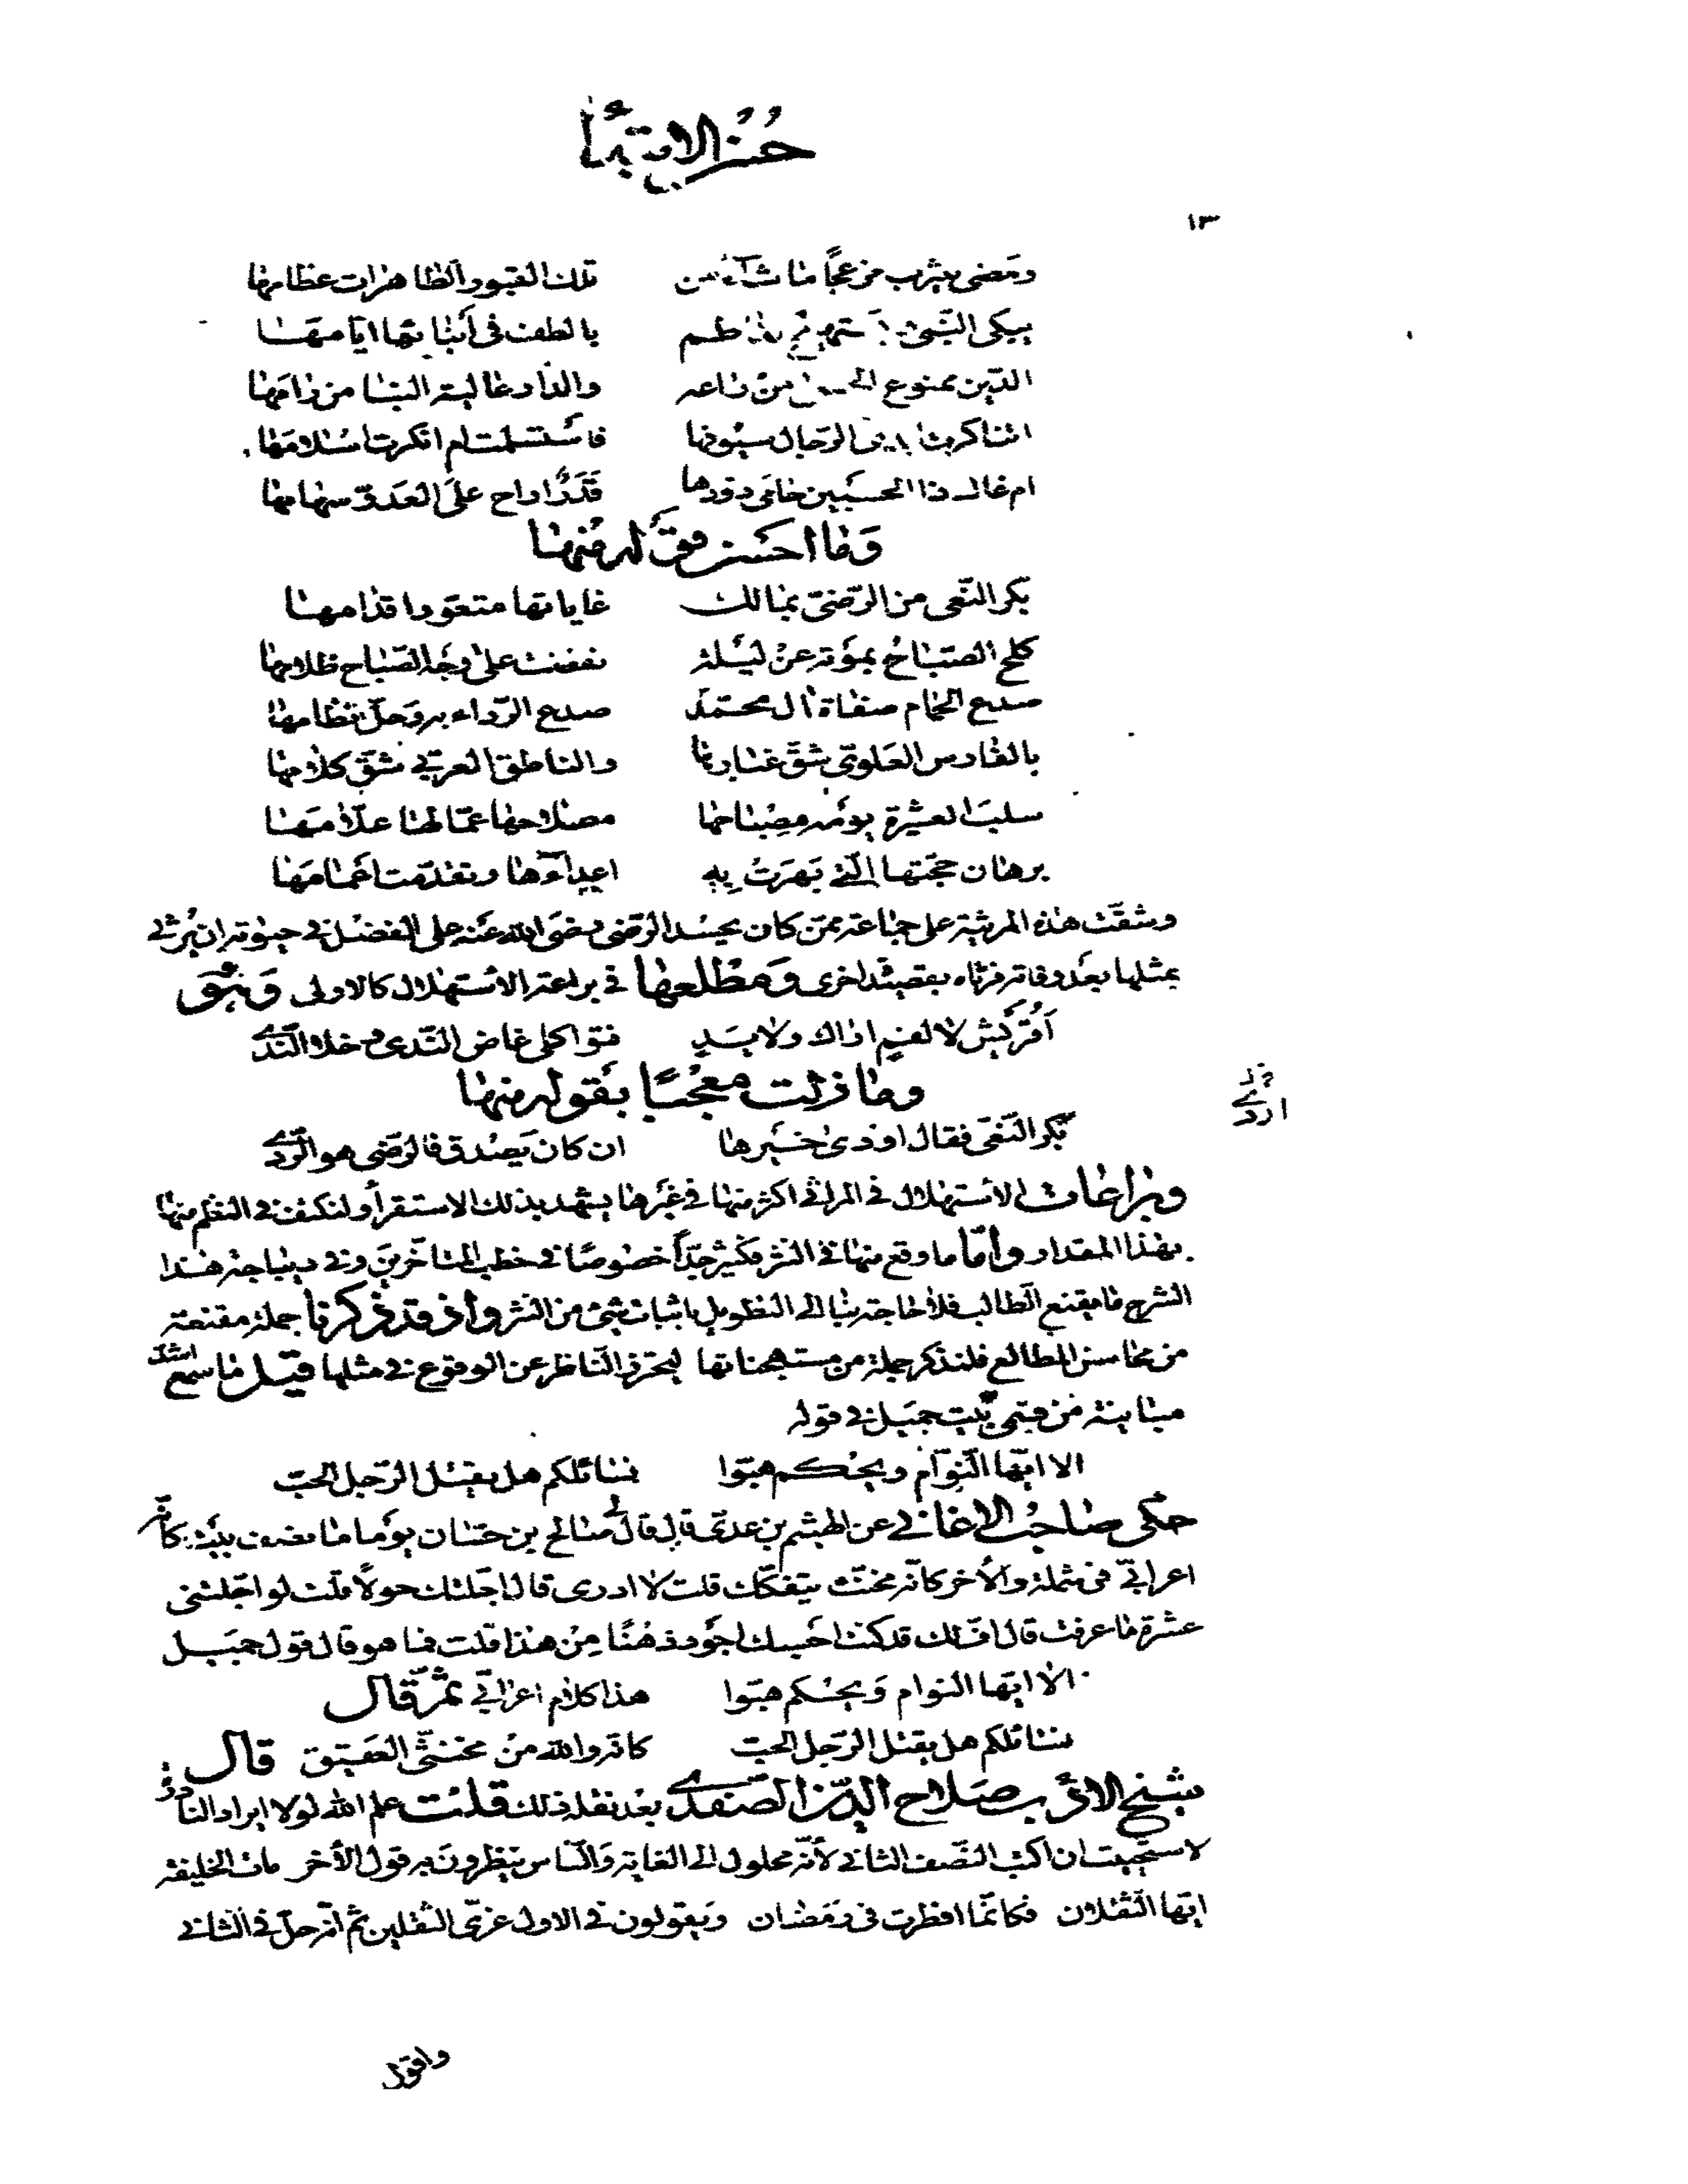 حسن الابتداء
١٣
ومضى بيثرب مزعجا ما شاء من تلك القبور الطاهرات عظامها
يبكي النبي ويستهيج لفاطم بالطف في أبنائها ايامها
الدين ممنوع الحمى من راعه والدار عالية البنا من رامها
اتناكرت ايدي الرجال سيوفها فاستسلمت ام انكرت اسلامها
ام غال ذا الحسبين حامي ذودها قدر اراح على العدو سهامها
وما احسن قوله منها
بكر النعي من الرضي بمالك غاياتها متعود اقدامها
كلح الصباح بموته عن ليلة نفضت على وجه الصباح ظلامها
صدع الحمام صفاة آل محمد صدع الرداء به وحل نظامها
بالفارس العلوي شق غبارها والناطق العربي شق كلامها
سلب العشيرة يومه مصباحها مصلاحها عمالها علامها
برهان حجتها التي بهرت به اعداءها وتقدمت اعمامها
وشقت هذه المرثية على جماعة ممن كان يحسد الرضي رضي الله عنه على الفضل في حيوته ان يرثى
بمثلها بعد وفاته فرثاه بقصيدة اخرى ومطلعها في براعة الاستهلال كالاولى وهو
اقريش لا لفم اراك ولا يد فتواكلي غاض الندى وخلا الندي
وما زلت معجبا بقوله منها
بكر النعي فقال اودى خيرها ان كان يصدق فالرضي هو الردي
وبراعات الاستهلال في المراثي اكثر منها في غيرها يشهد بذلك الاستقرأ ولنكتف في النظم منها
بهذا المقدار واما ما وقع منها في النثر فكثير جدا خصوصا في خطب المتأخرين وفي ديباجة هذا
الشرح ما يقنع الطالب فلا حاجة بنا الى التطويل باثبات شيء من النثر واذ قد ذكرنا جملة مقنعة
من محاسن المطالع فلنذكر جملة من مستهجناتها ليحترز الناظر عن الوقوع في مثلها قيل ما سمع اشد
مباينة من قسمي بيت جميل في قوله
الا ايها النوام ويحكم هبوا نسائلكم هل يقتل الرجل الحب
حكى صاحب الاغاني عن الهيثم بن عدي قال قال لي صالح بن حسان يوما ما نصف بيت كانه
اعرابي في شملة والأخر كانه مخنث يتفكك قلت لا ادرى قال اجلتك حولا قلت لو اجلتنى
عشرة ما عرفت قال اف لك قد كنت احسبك اجود ذهنا من هذا قلت فما هو قال قول جميل
الا ايها النوام ويحكم هبوا هذا كلام اعرابي ثم قال
نسائلكم هل يقتل الرجل الحب كانه والله من مخنثي العقيق قال
شيخ الادب صلاح الدين الصفدي بعد نقله ذلك قلت علم الله لولا ايراد النادرة
لاستحييت ان اكتب النصف الثاني لأنه محلول الى الغاية والناس يتظرون به قول الأخر مات الخليفة
ايها الثقلان فكانما افطرت في رمضان ويقولون في الاول عزى الثقلين ثم انه حل في الثاني
واقول